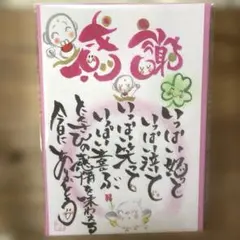 感謝
いっぱい怒って
いっぱい泣いて
いっぱい笑って
いっぱい喜ぶ
感情を味わえる
今にありがとう